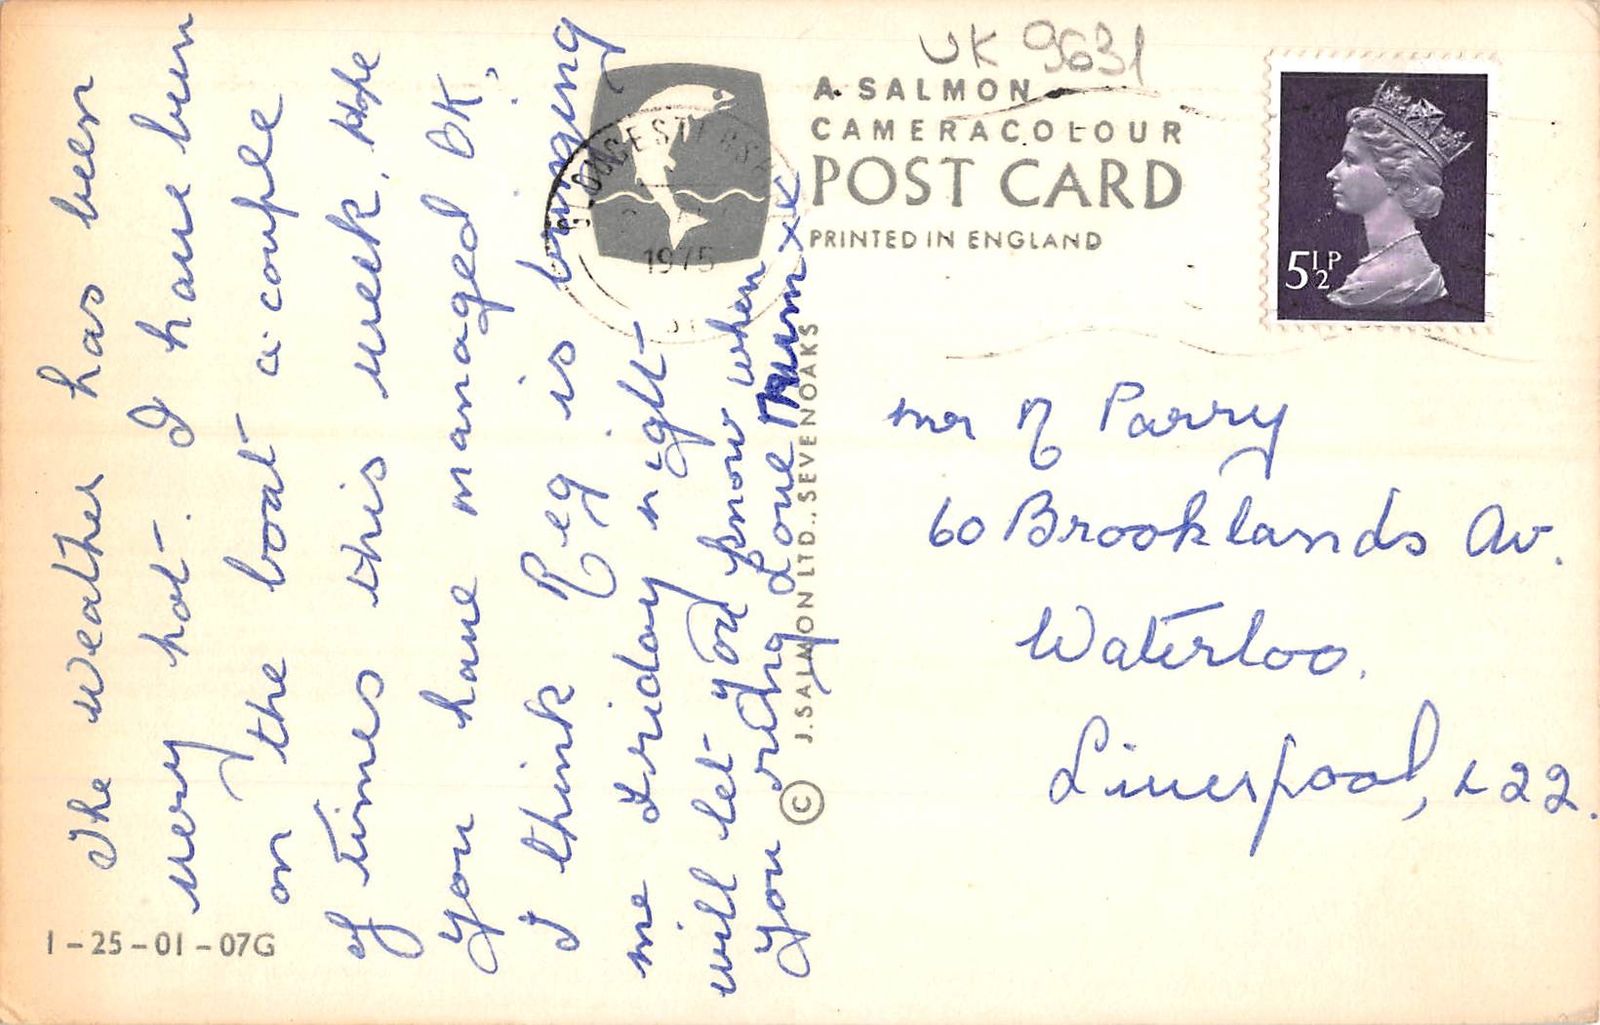 The weather has been
very hot. I have been
on the boat a couple
of times this week, Hope
you have managed OK.
I think Reg is bringing
me Friday night
will let you know when
you ring Love Mum xx
1-25-01-07G
1975
UK 9631
A SALMON
CAMERACOLOUR
POST CARD
PRINTED IN ENGLAND
© J. SALMON LTD., SEVENOAKS
5½P
Mr N Parry
60 Brooklands Av.
Waterloo.
Liverpool, L22.